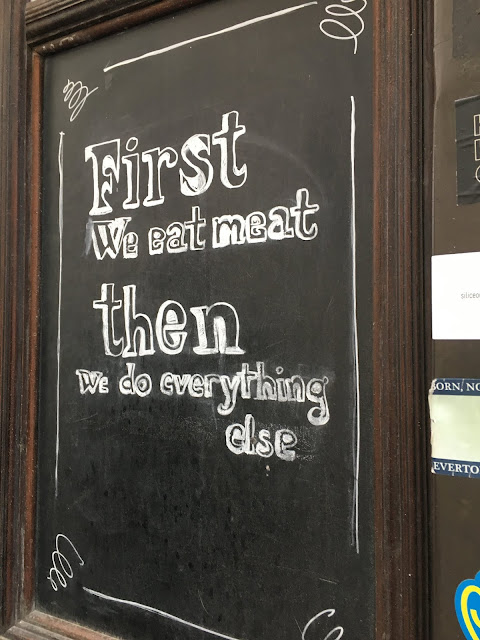 First
We eat meat
then
we do everything
else
siliceo
ORN, NO
EVERTO